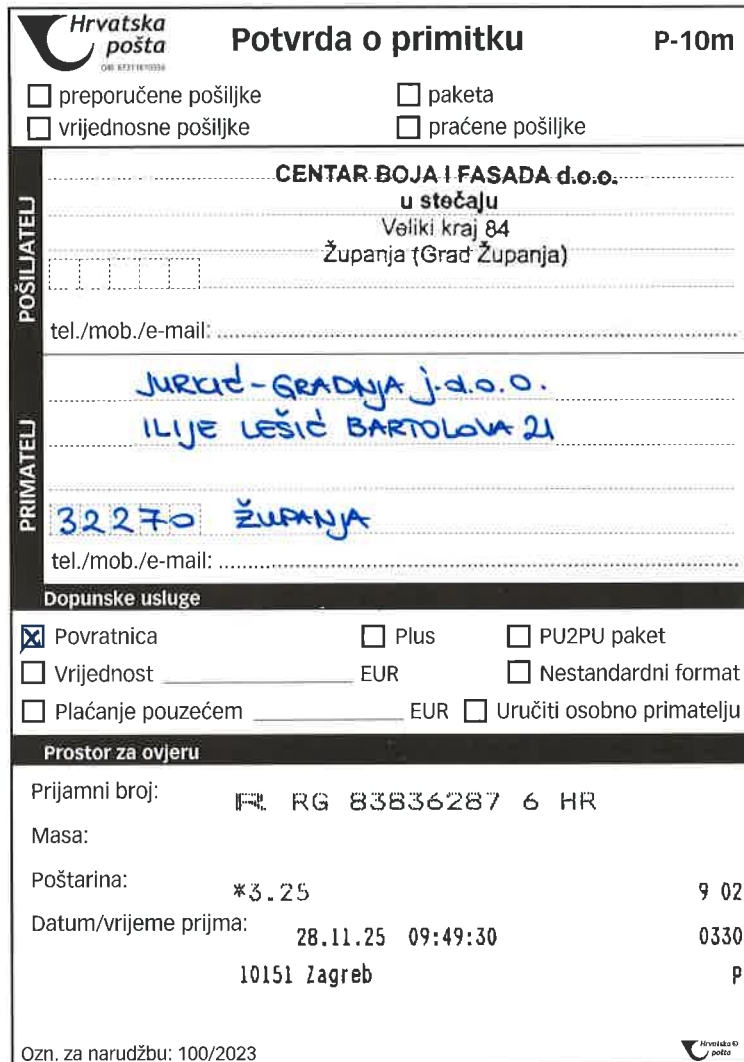 Hrvatska pošta
Potvrda o primitku P-10m
preporučene pošiljke paketa
vrijednosne pošiljke praćene pošiljke
POŠILJATELJ
CENTAR BOJA I FASADA d.o.o.
u stečaju
Veliki kraj 84
Županja (Grad Županja)
tel./mob./e-mail:
PRIMATELJ
JURKIĆ-GRADNJA j.d.o.o.
ILIJE LEŠIĆ BARTOLOVA 21
32270 ŽUPANJA
tel./mob./e-mail:
Dopunske usluge
x Povratnica Plus PU2PU paket
Vrijednost EUR Nestandardni format
Plaćanje pouzećem EUR Uručiti osobno primatelju
Prostor za ovjeru
Prijamni broj: R RG 83836287 6 HR
Masa:
Poštarina: *3.25 9 02
Datum/vrijeme prijma: 28.11.25 09:49:30 0330
10151 Zagreb P
Ozn. za narudžbu: 100/2023 Hrvatska pošta